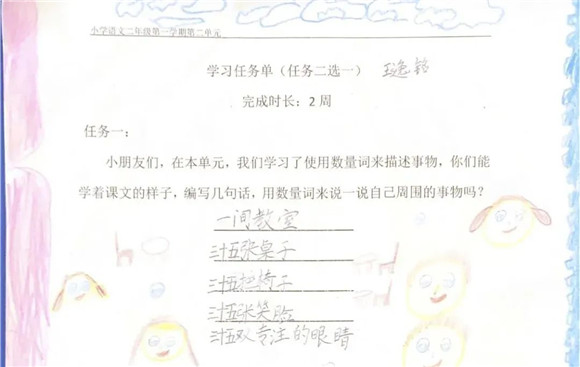 小学语文二年级第一学期第二单元
学习任务单（任务二选一）
完成时长：2周
任务一：
小朋友们，在本单元，我们学习了使用数量词来描述事物，你们能
学着课文的样子，编写几句话，用数量词来说一说自己周围的事物吗？
一间教室
卅五张桌子
卅五把椅子
卅五张笑脸
卅五双专注的眼睛